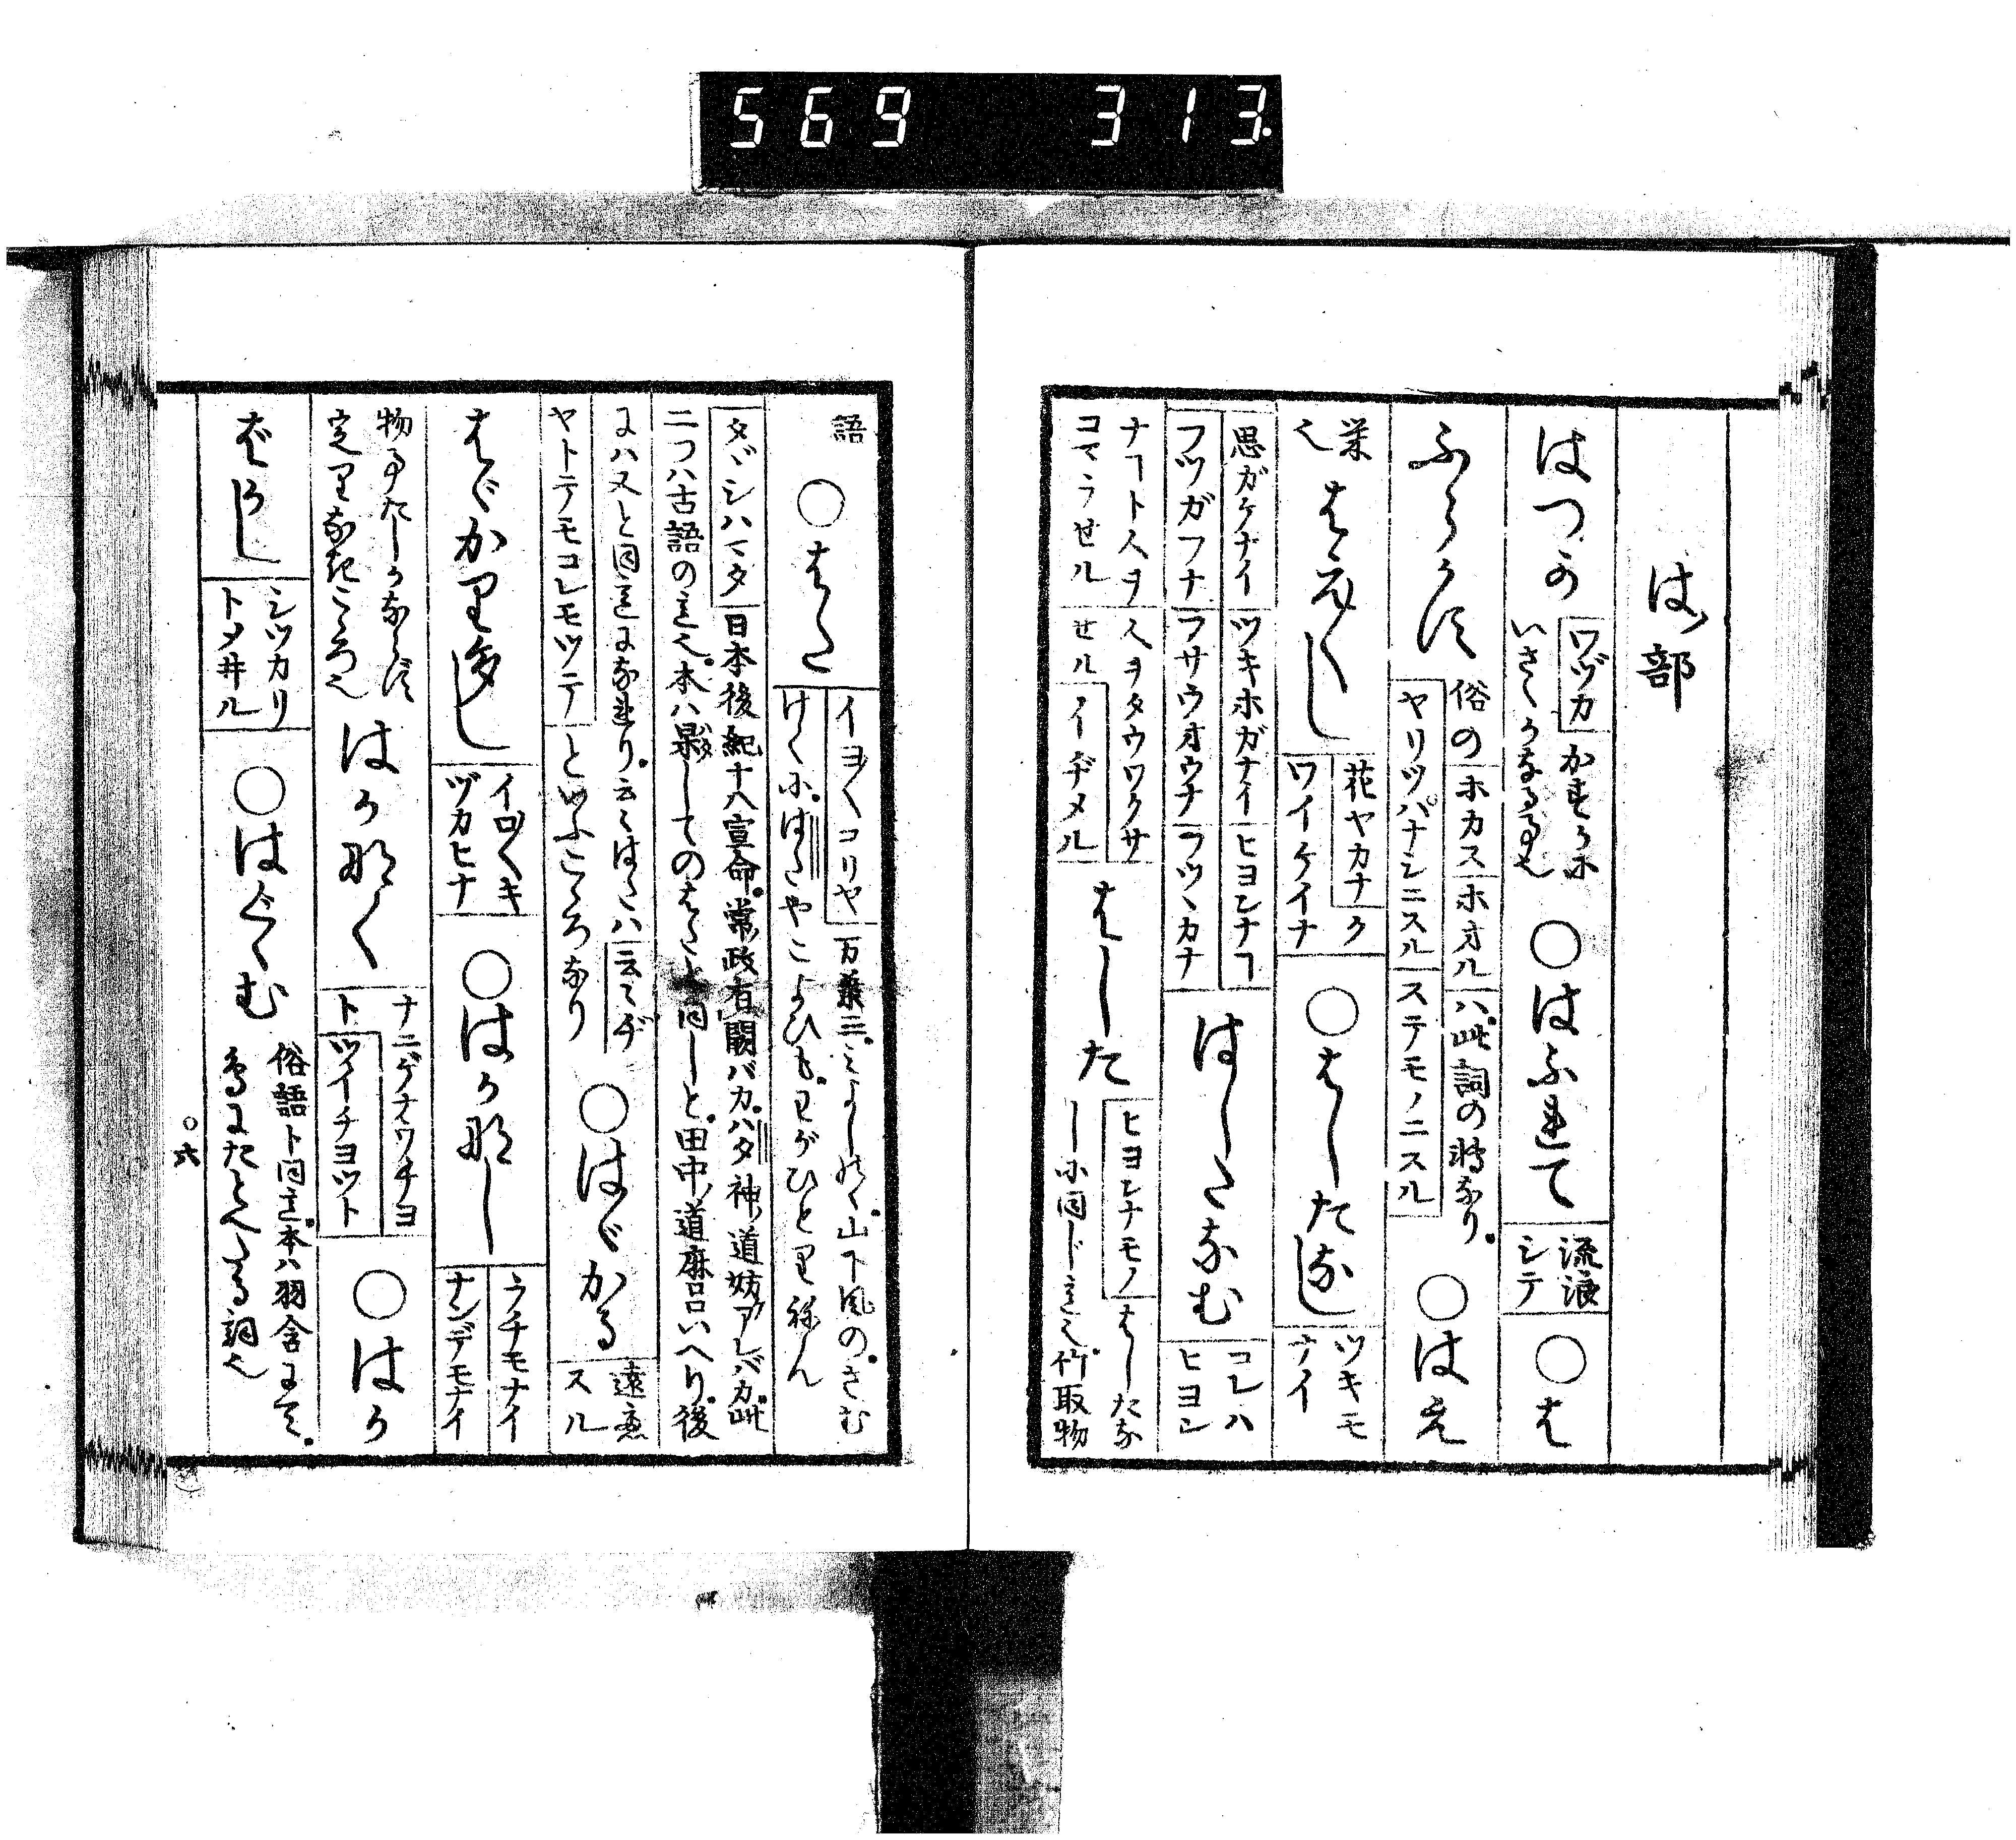 569 313.
は部
はつか
ワヅカ
かすかに
いさゝかなる事也
○はふれて
流浪シテ
○は
ふらかす
俗の
ホカス
ホオル
ハ此詞の転なり。
ヤリツパナシニスル
ステモノニスル
○はえ
栄
也
はえ〴〵し
花ヤカナ
ク
ワイケイナ
○はしたなし
ツキモナイ
思ガケナイ
ツキホガナイ
ヒヨンナヿ
フツガフナ
フサウオウナ
ラツヽカナ
はしたなむ
コレハ
ヒヨン
ナヿトスヲ
スヲタウワクサ
コマラせル
せル
イヂメル
はした
ヒヨンナモノ
はしたな
しに同じ意也竹取物
語
○はた
イヨ〳〵コリヤ
万葉三。みよしのゝ山下風のさむ
けくに。はたやこよひも。わがひとりねん
タヾシハマタ
日本後紀十八宣命。常政有闕バカ。ハタ神道妨アレバカ。此
二ツハ古語の意也。本ハ果してのはたと同しと。田中ノ道麻呂いへり。後
にハ又と同意になれり。云々はたハ
云々ヂ
ヤトテモコレモツテ
といふこゝろなり
○はゞかる
遠慮スル
はゞかり多し
イロ〳〵キヅカヒナ
○はか那し
ラチモナイ
ナンデモナイ
物事たしかならず
定りなきこゝろ也
はか那く
ナニゲナスワチヨ
ト
ツイチヨツト
○はか
ばかし
シツカリ
トメ井ル
○はぐくむ
俗語ト同意。本ハ羽含にて。
鳥にたとへたる詞也
○六